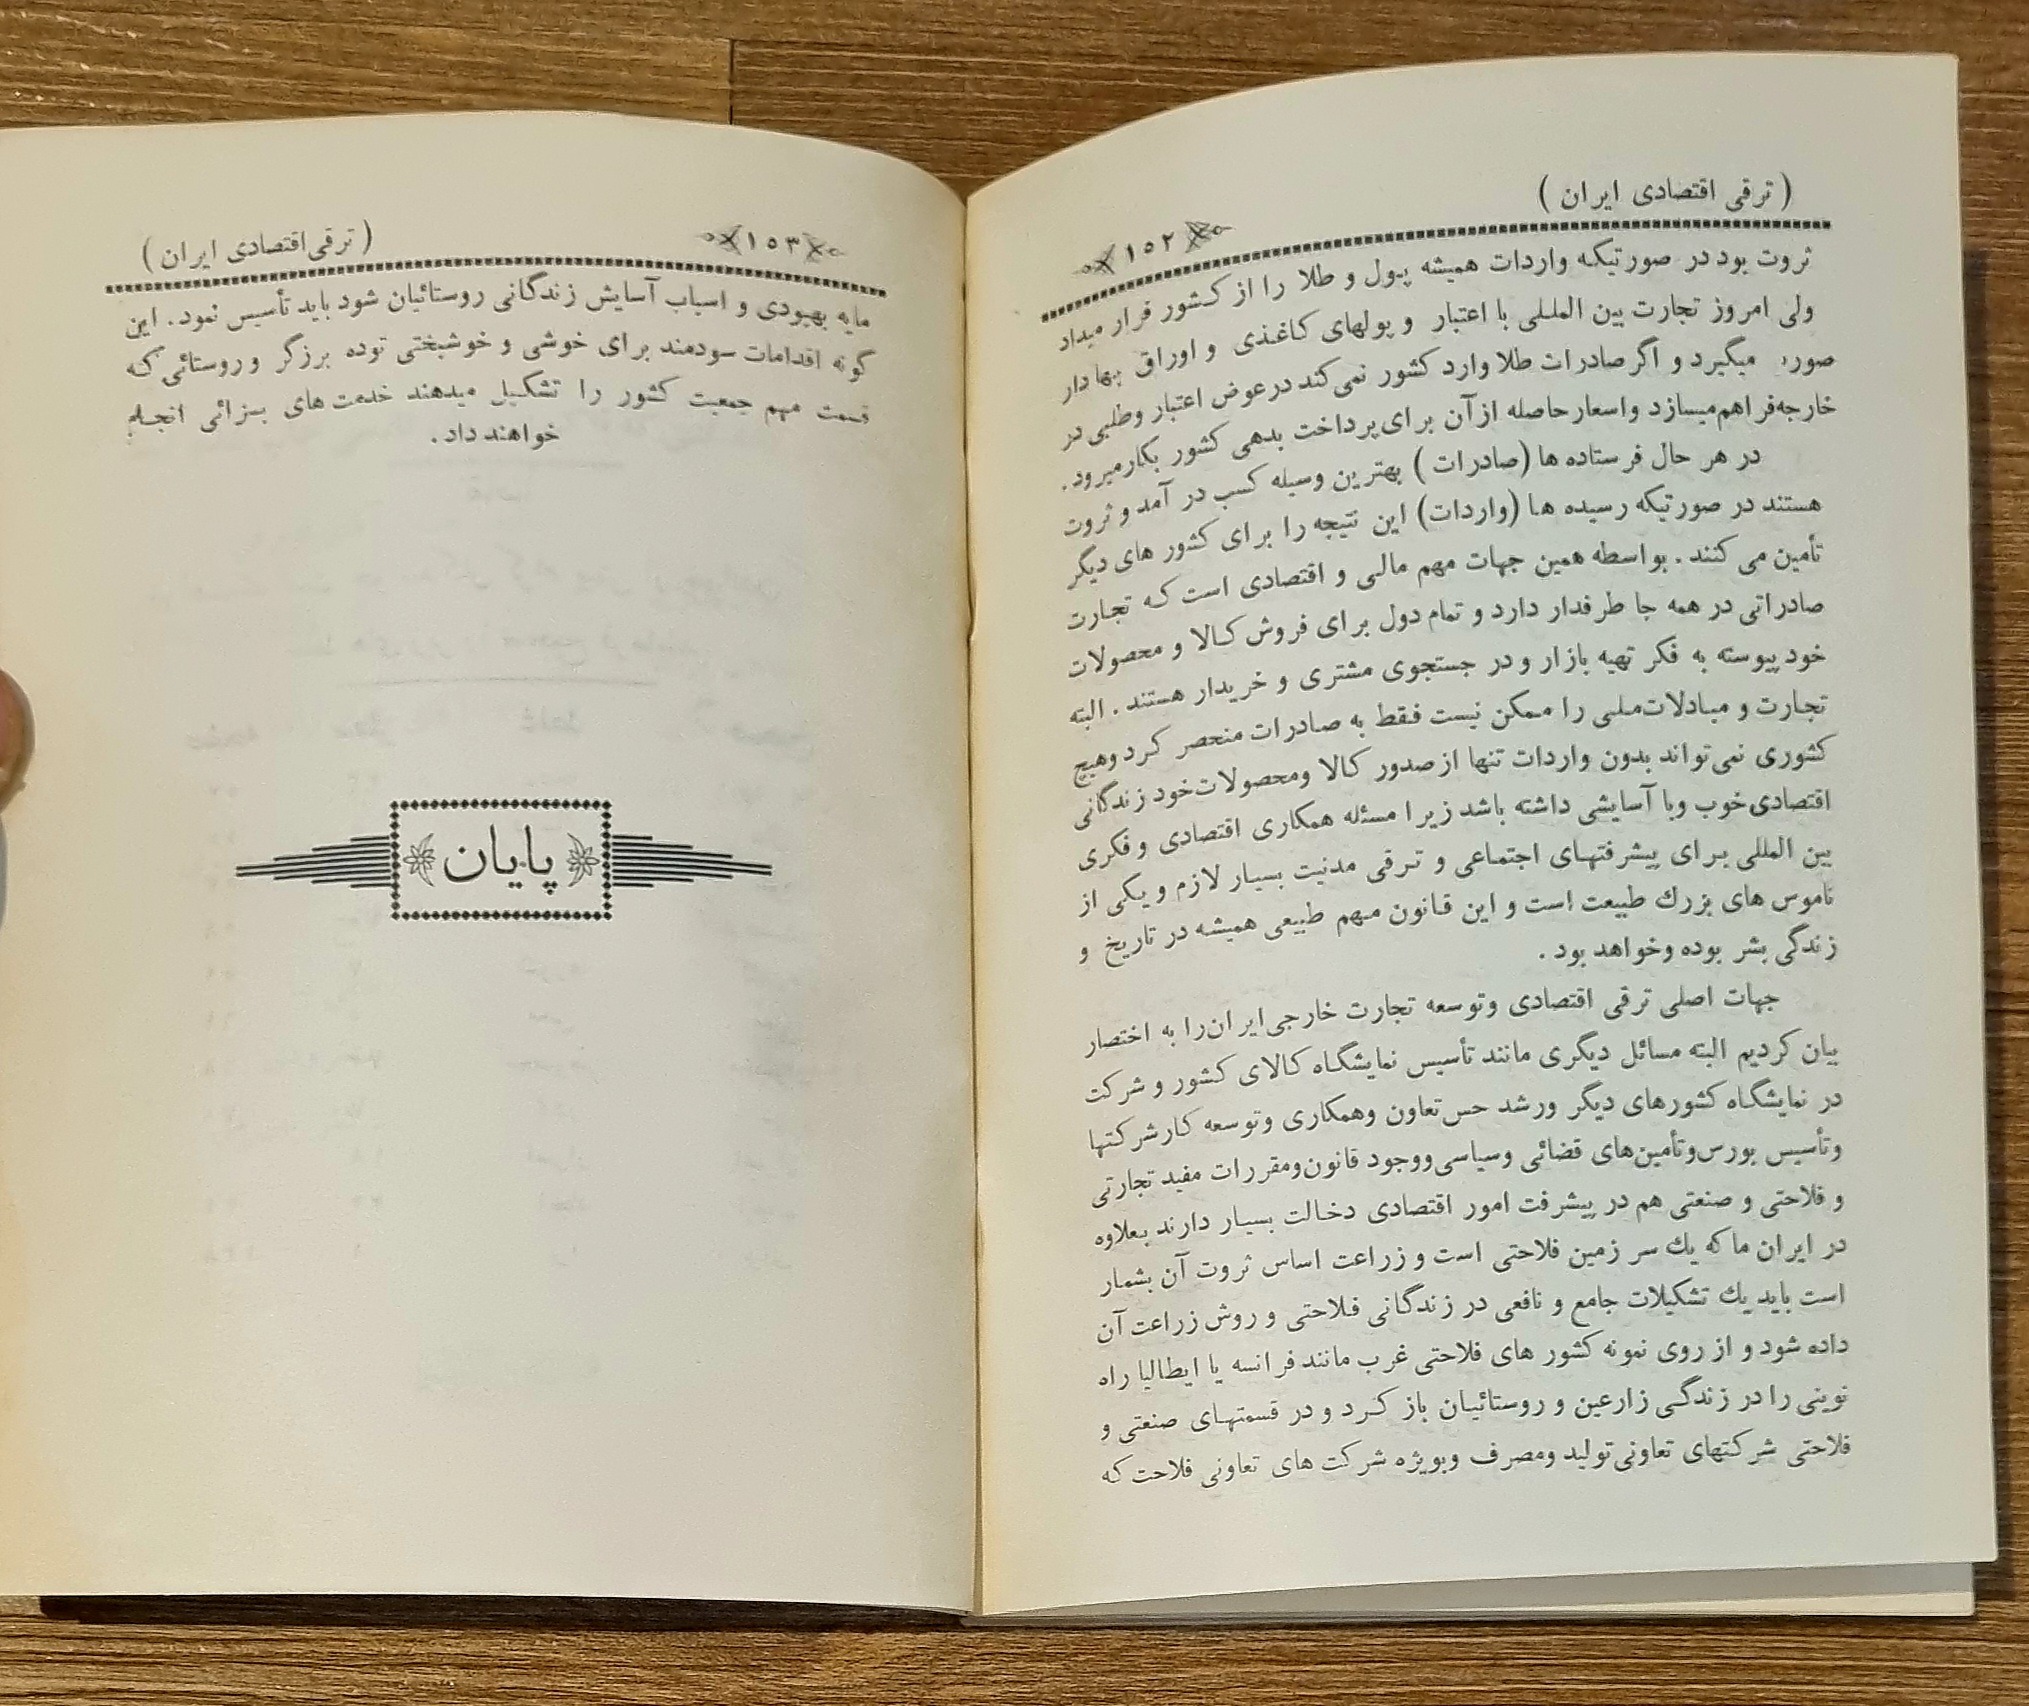 ( ترقی اقتصادی ایران )
١٥٢
ثروت بود در صورتیکه واردات همیشه پول و طلا را از کشور فرار میداد
ولی امروز تجارت بین المللی با اعتبار و پولهای کاغذی و اوراق بهادار
صور میگیرد و اگر صادرات طلا وارد کشور نمی کند در عوض اعتبار و طلبی در
خارجه فراهم میسازد و اسعار حاصله از آن برای پرداخت بدهی کشور بکار میرود .
در هر حال فرستاده ها (صادرات ) بهترین وسیله کسب در آمد و ثروت
هستند در صورتیکه رسیده ها (واردات) این نتیجه را برای کشور های دیگر
تأمین می کنند . بواسطه همین جهات مهم مالی و اقتصادی است که تجارت
صادراتی در همه جا طرفدار دارد و تمام دول برای فروش کالا و محصولات
خود پیوسته به فکر تهیه بازار و در جستجوی مشتری و خریدار هستند . البته
تجارت و مبادلات ملی را ممکن نیست فقط به صادرات منحصر کرد و هیچ
کشوری نمی تواند بدون واردات تنها از صدور کالا و محصولات خود زندگانی
اقتصادی خوب و با آسایشی داشته باشد زیرا مسئله همکاری اقتصادی و فکری
بین المللی برای پیشرفتهای اجتماعی و ترقی مدنیت بسیار لازم و یکی از
ناموس های بزرك طبیعت است و این قانون مهم طبیعی همیشه در تاریخ و
زندگی بشر بوده و خواهد بود .
جهات اصلی ترقی اقتصادی و توسعه تجارت خارجی ایران را به اختصار
بیان کردیم البته مسائل دیگری مانند تأسیس نمایشگاه کالای کشور و شرکت
در نمایشگاه کشورهای دیگر و رشد حس تعاون و همکاری و توسعه کار شرکتها
و تأسیس بورس و تأمین های قضائی و سیاسی و وجود قانون و مقررات مفید تجارتی
و فلاحتی و صنعتی هم در پیشرفت امور اقتصادی دخالت بسیار دارند بعلاوه
در ایران ما که یك سر زمین فلاحتی است و زراعت اساس ثروت آن بشمار
است باید یك تشکیلات جامع و نافعی در زندگانی فلاحتی و روش زراعت آن
داده شود و از روی نمونه کشور های فلاحتی غرب مانند فرانسه یا ایطالیا راه
نوینی را در زندگی زارعین و روستائیان باز کرد و در قسمتهای صنعتی و
فلاحتی شرکتهای تعاونی تولید و مصرف و بویژه شرکت های تعاونی فلاحت که
١٥٣
( ترقی اقتصادی ایران )
مایه بهبودی و اسباب آسایش زندگانی روستائیان شود باید تأسیس نمود . این
گونه اقدامات سودمند برای خوشی و خوشبختی توده برزگر و روستائی که
قسمت مهم جمعیت کشور را تشکیل میدهند خدمت های بسزائی انجام
خواهند داد .
پایان